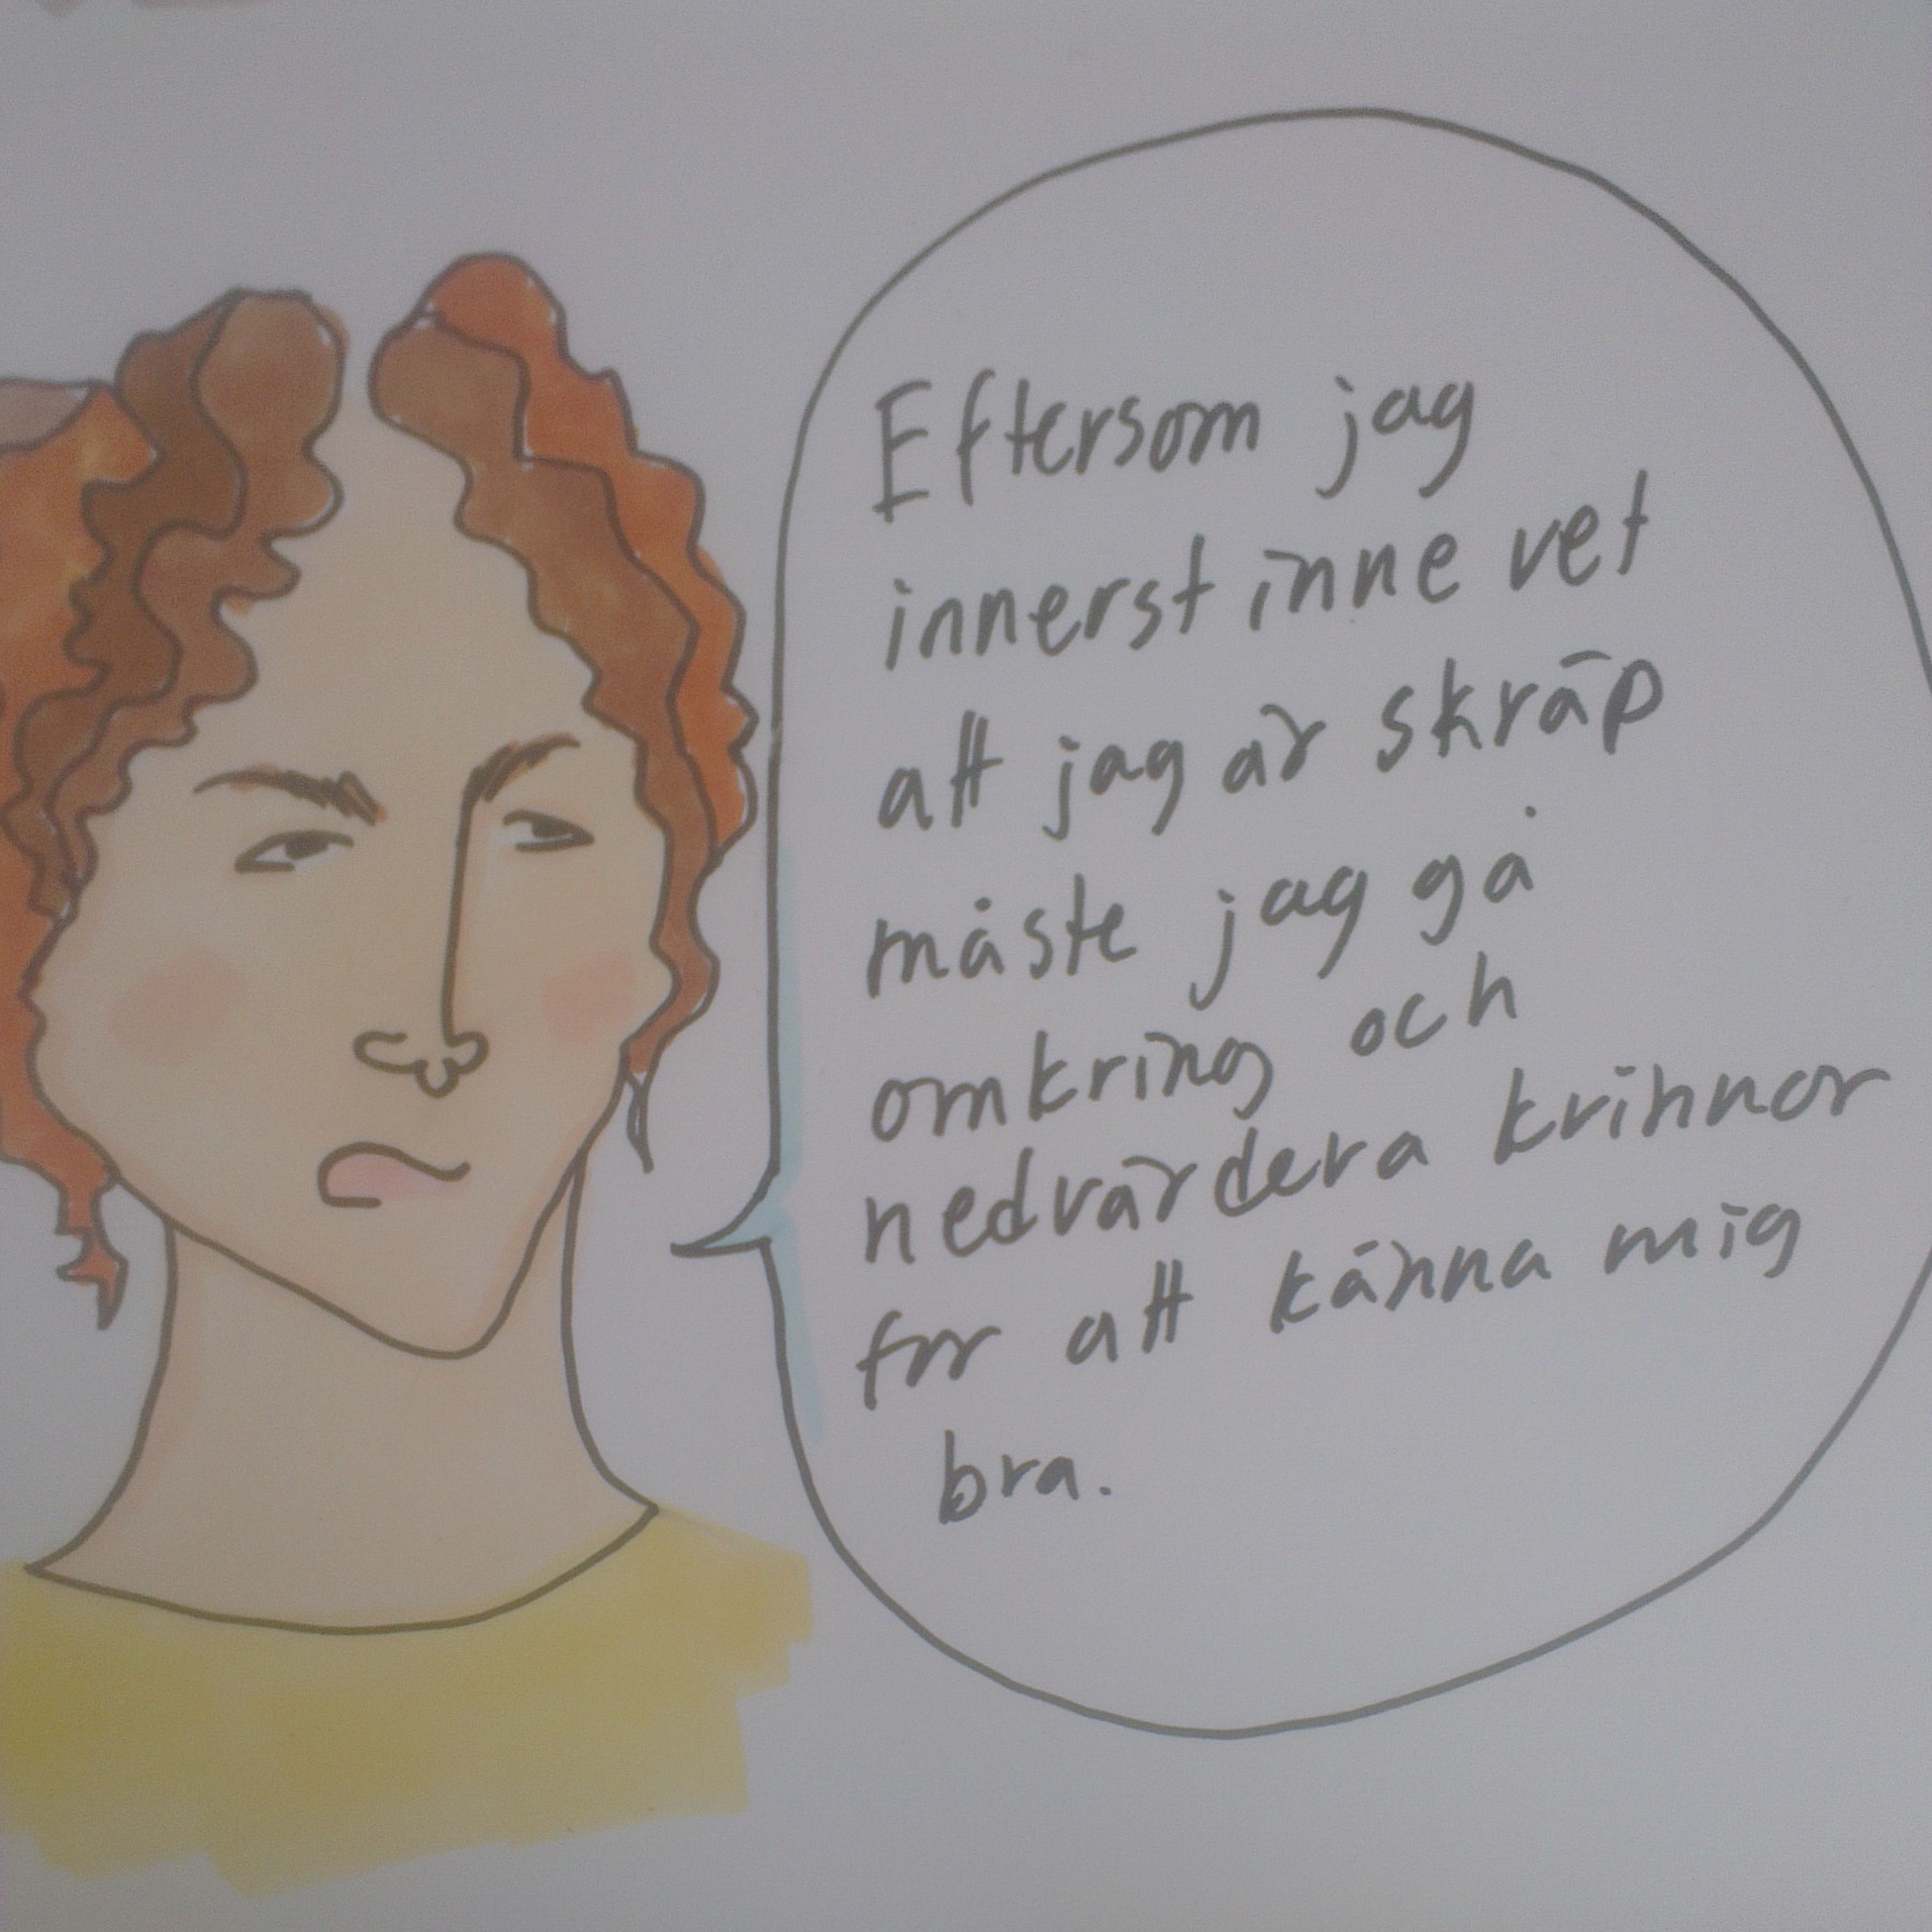 Eftersom jag
innerst inne vet
att jag är skräp
måste jag gå
omkring och
nedvärdera kvinnor
för att känna mig
bra.